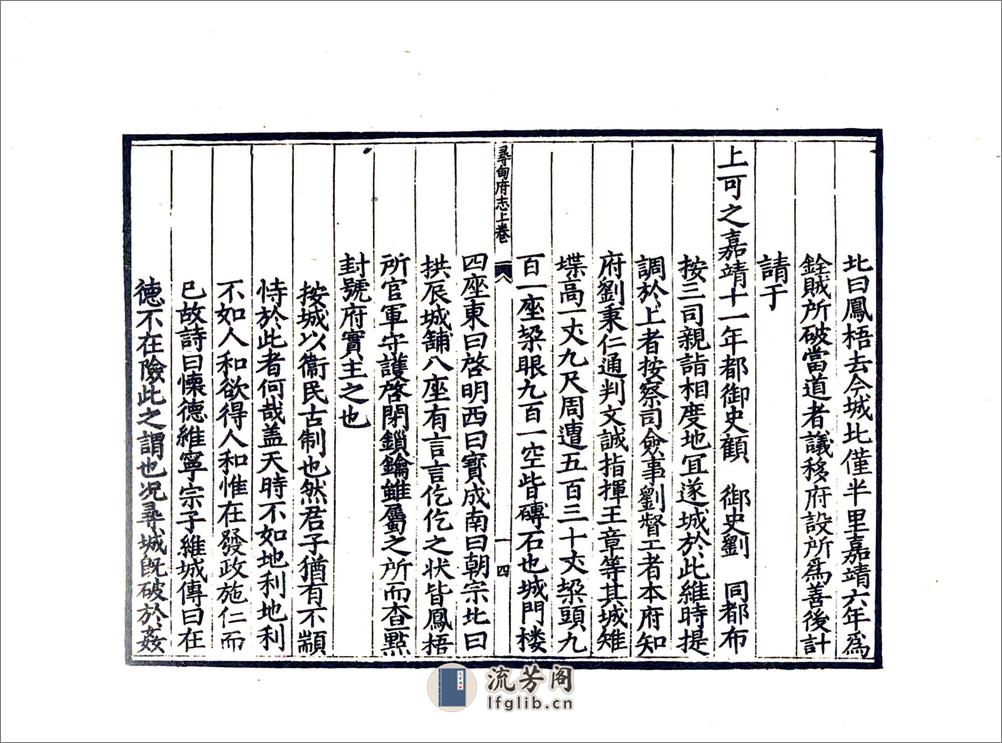 北曰鳳梧去今城北僅半里嘉靖六年爲
銓賊所破當道者議移府設所爲善後計
請于
上可之嘉靖十一年都御史顧　御史劉　同都布
按三司親詣相度地冝遂城於此維時提
調於上者按察司僉事劉督工者本府知
府劉秉仁通判文誠指揮王章等其城雉
堞高一丈九尺周遭五百三十丈垜頭九
百一座垜眼九百一空皆磚石也城門楼
四座東曰啓明西曰寶成南曰朝宗北曰
拱辰城鋪八座有言言仡仡之状皆鳳梧
所官軍守護啓閉鎖鑰雖屬之所而查㸃
封號府實主之也
按城以衞民古制也然君子猶有不顓
恃於此者何哉盖天時不如地利地利
不如人和欲得人和惟在發政施仁而
已故詩曰懷德維寧宗子維城傳曰在
德不在險此之謂也况尋城旣破於姦
尋甸府志上卷
四
流芳阁
lfglib.cn